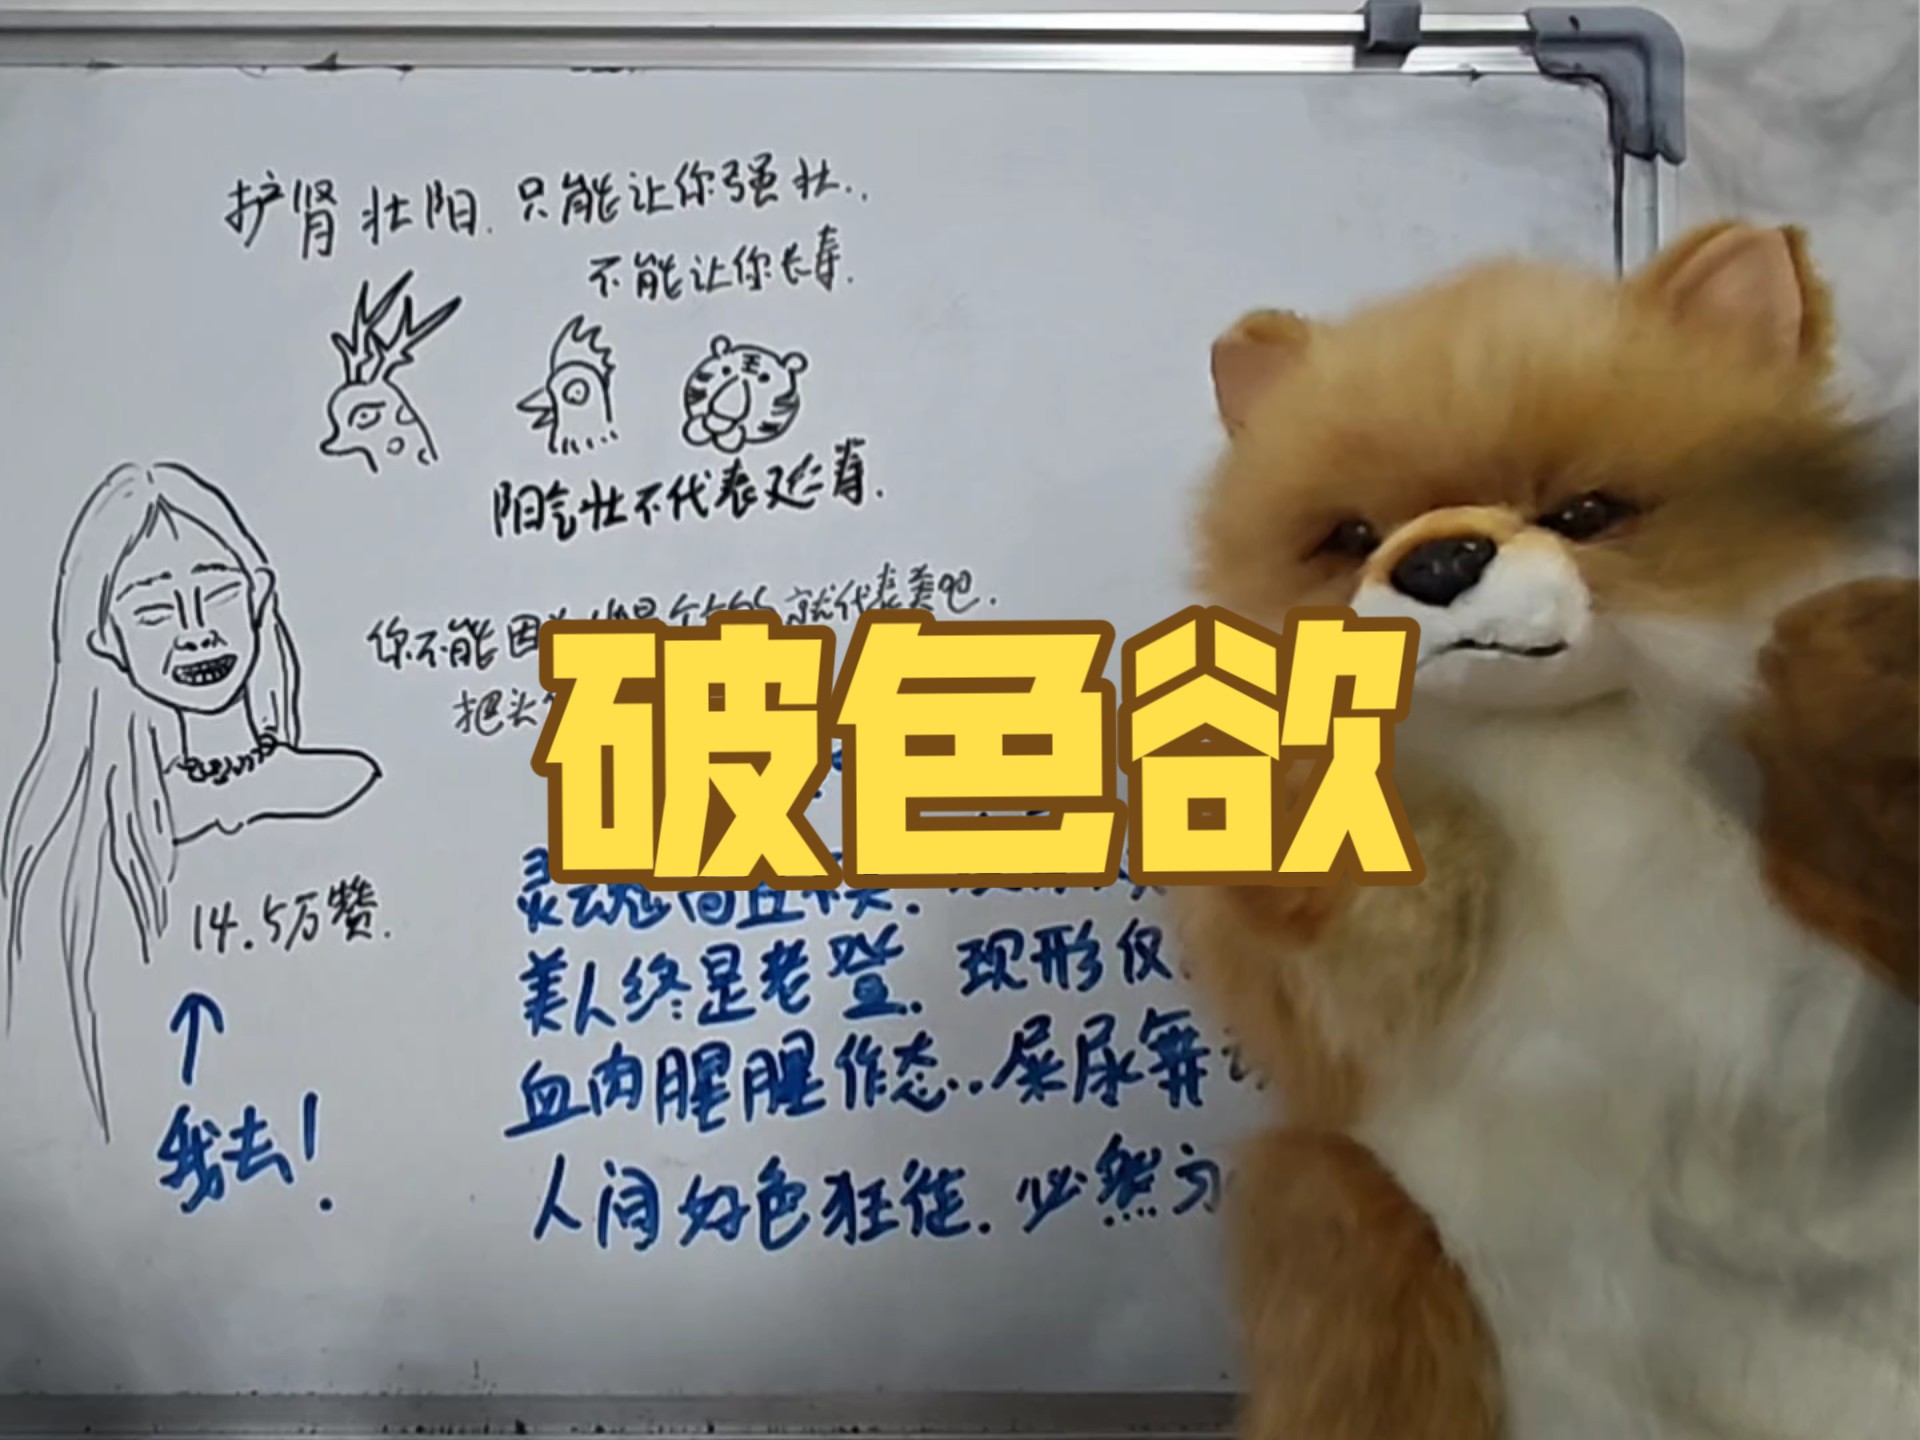 护肾壮阳.只能让你强壮..
不能让你长寿.
王
阳气壮不代表延寿.
你不能因 就代表美吧.
把头
破色欲
14.5万赞.
灵魂
美人终是老登.现形仅
血肉腥腥作态..屎尿舞
人间好色狂徒.必然
我去!